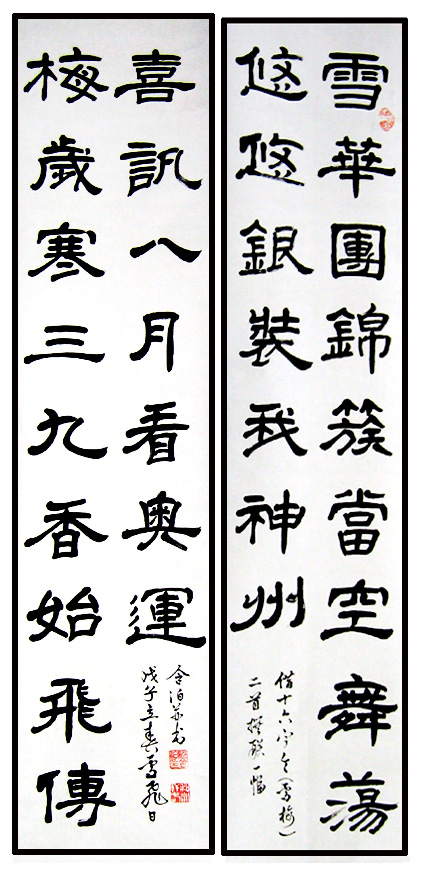 雪華團錦簇當空舞蕩
悠悠銀裝我神州
借十六字令(雪梅)
二首撰联一幅
梅歲寒三九香始飛傳
喜訊八月看奧運
戊子立春雪飛日